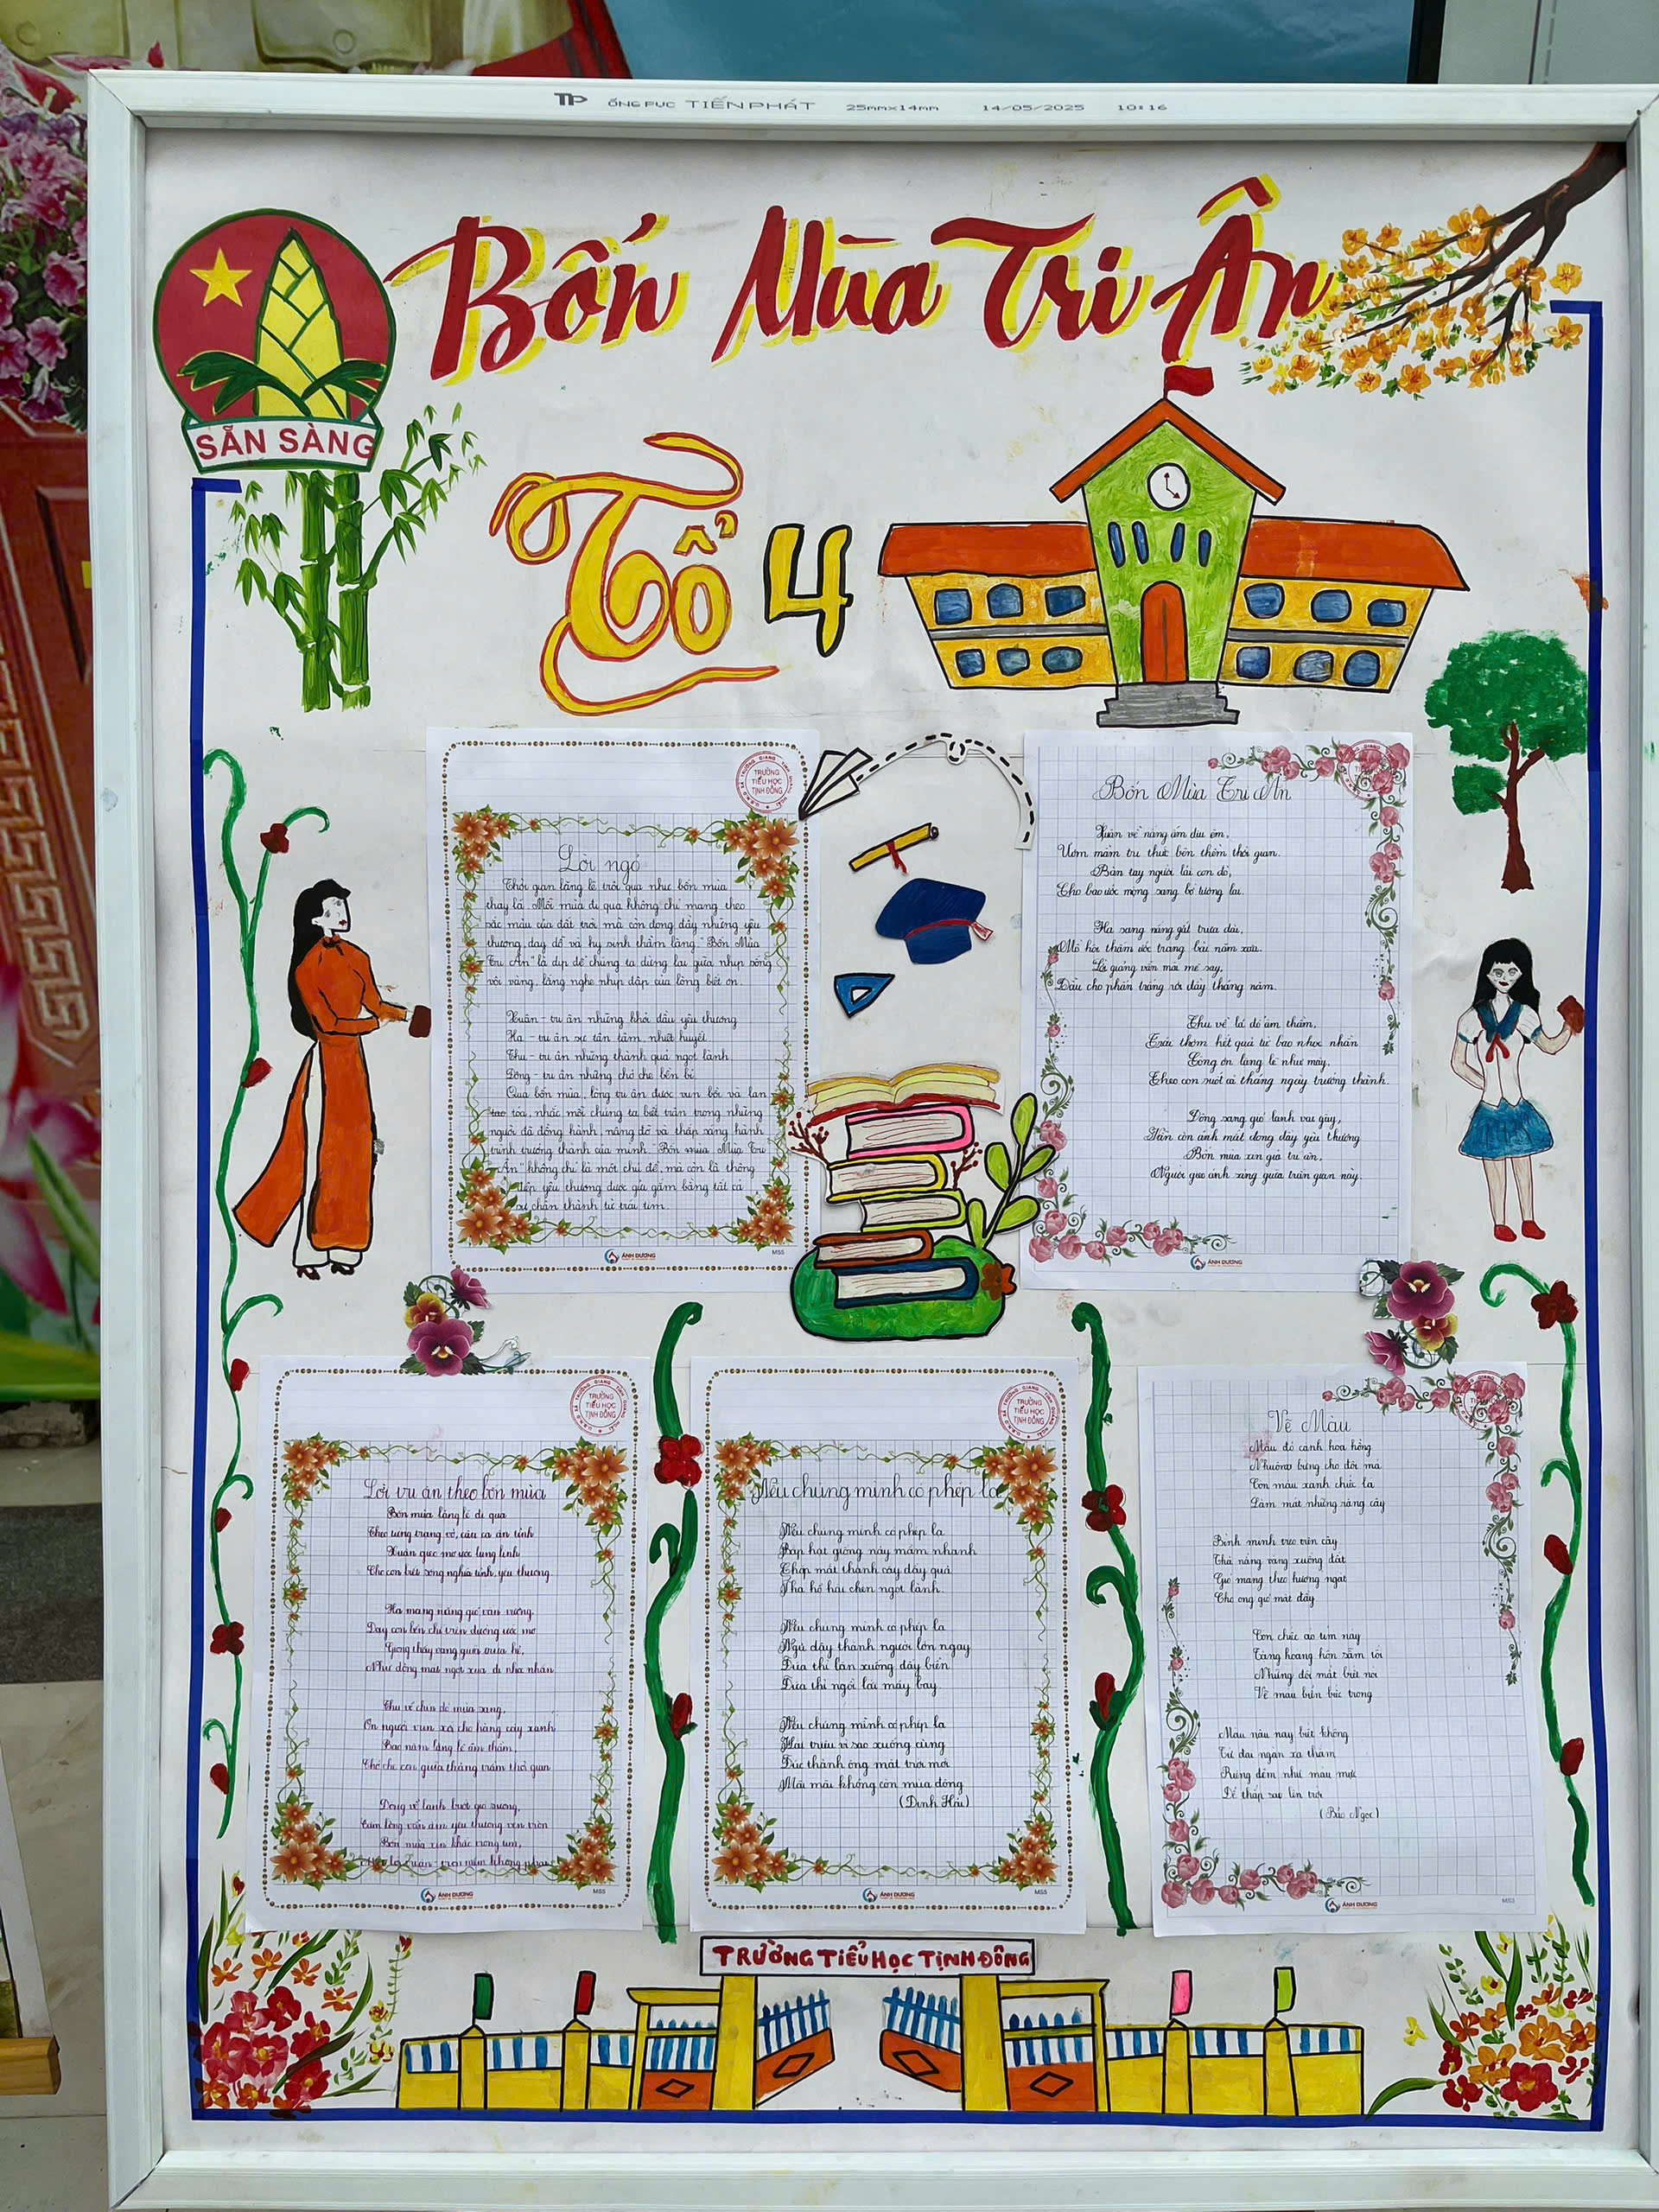 TP ỐNG PVC TIẾN PHÁT 25mmx14mm 14/05/2025 10:16
Bốn Mùa Tri Ân
SẴN SÀNG
Tổ 4
TRƯỜNG
TIỂU HỌC
TỊNH ĐÔNG
Lời ngỏ
Thời gian lặng lẽ trôi qua như bốn mùa
thay lá. Mỗi mùa đi qua không chỉ mang theo
sắc màu của đất trời mà còn đong đầy những yêu
thương, dạy dỗ và hy sinh thầm lặng. "Bốn Mùa
Tri Ân" là dịp để chúng ta dừng lại giữa nhịp sống
vội vàng, lắng nghe nhịp đập của lòng biết ơn.
Xuân - tri ân những khởi đầu yêu thương
Hạ - tri ân sự tận tâm, nhiệt huyết
Thu - tri ân những thành quả ngọt lành
Đông - tri ân những chở che bền bỉ
Qua bốn mùa, lòng tri ân được vun bồi và lan
tỏa, nhắc mỗi chúng ta biết trân trọng những
người đã đồng hành, nâng đỡ và thắp sáng hành
trình trưởng thành của mình. "Bốn mùa Mùa Tri
Ân" không chỉ là một chủ đề, mà còn là thông
điệp yêu thương được gửi gắm bằng tất cả
sự chân thành từ trái tim.
ÁNH DƯƠNG
MS5
Bốn Mùa Tri Ân
Xuân về nắng ấm dịu êm,
Ươm mầm tri thức bên thềm thời gian.
Bàn tay người lái con đò,
Cho bao ước mộng sang bờ tương lai.
Hạ sang nắng gắt trưa dài,
Mồ hôi thấm ướt trang bài năm xưa.
Lời giảng vẫn mải mê say,
Dẫu cho phấn trắng rơi đầy tháng năm.
Thu về lá đổ âm thầm,
Trái thơm kết quả từ bao nhọc nhằn
Công ơn lặng lẽ như mây,
Theo con suốt cả tháng ngày trưởng thành.
Đông sang gió lạnh vai gầy,
Vẫn còn ánh mắt đong đầy yêu thương
Bốn mùa xin giữ tri ân,
Người gieo ánh sáng giữa trần gian này.
ÁNH DƯƠNG
TRƯỜNG
TIỂU HỌC
TỊNH ĐÔNG
Lời tri ân theo bốn mùa
Bốn mùa lặng lẽ đi qua
Theo từng trang vở, câu ca ân tình
Xuân gieo mơ ước lung linh
Cho con biết sống nghĩa tình, yêu thương
Hạ mang nắng gió
Dạy con bền chí trên đường ước mơ
Giọng thầy vang giữa trưa hè,
Thu về
Ơn người vun xới cho hàng cây xanh
Bao năm lặng lẽ âm thầm,
Chở che con giữa tháng năm thời gian
Đông về lạnh buốt gió sương,
Tấm lòng vẫn ấm yêu thương vẹn tròn
Bốn mùa xin khắc trong tim,
ÁNH DƯƠNG
MS5
TRƯỜNG
TIỂU HỌC
TỊNH ĐÔNG
Nếu chúng mình có phép lạ
Nếu chúng mình có phép lạ
Bắp hạt giống nảy mầm nhanh
Chớp mắt thành cây đầy quả
Tha hồ hái chén ngọt lành.
Nếu chúng mình có phép lạ
Ngủ dậy thành người lớn ngay
Đứa thì lặn xuống đáy biển
Đứa thì ngồi lái máy bay.
Nếu chúng mình có phép lạ
Hái triệu vì sao xuống cùng
Đúc thành ông mặt trời mới
Mãi mãi không còn mùa đông
(Định Hải)
ÁNH DƯƠNG
MS5
Vẽ Màu
Màu đỏ cánh hoa hồng
Nhuộm bừng cho đôi má
Còn màu xanh chiếc lá
Làm mát những rặng cây
Bình minh treo trên cây
Thả nắng vàng xuống đất
Gió mang theo hương ngát
Cho ong giỏ mật đầy
Còn chiếc áo tím này
Tặng hoàng hôn sẫm tối
Những đôi mắt biết nói
Vẽ màu biển biếc trong
Màu nâu này biết không
Từ đại ngàn xa thẳm
Riêng đêm như màu mực
Để thắp sao lên trời
(Bảo Ngọc)
ÁNH DƯƠNG
MS3
TRƯỜNG TIỂU HỌC TỊNH ĐÔNG